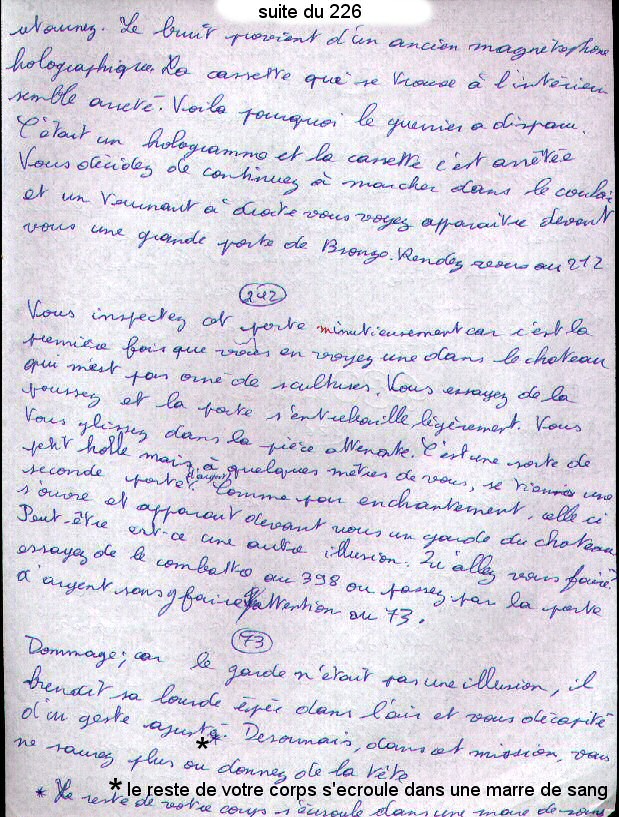 suite du 226
etournez. Le bruit provient d'un ancien magnétophone
holographique. La cassette qui se trouve à l'intérieur
semble arreté. Voila pourquoi le guerrier a disparu.
C'était un hologramme et la cassette c'est arrêtée
Vous décidez de continuez à marcher dans le couloir
et un tournant à droite vous voyez apparaître devant
vous une grande porte de Bronze. Rendez vous au 212
242
Vous inspectez cet porte minutieusement car c'est la
première fois que vous en voyez une dans le chateau
qui n'est pas orné de scultures. Vous essayez de la
poussez et la porte s'entrebaille légèrement. Vous
Vous glissez dans la pièce attenante. C'est une sorte de
petit halle mais, à quelques mètres de vous, se tient une
seconde porte d'argent. Comme par enchantement, celle ci
s'ouvre et apparait devant vous un garde du chateau
Peut-être est-ce une autre illusion. Qu'allez vous faire?
essayez de le combattre au 398 ou passez par la porte
d'argent sans y faire attention au 73.
73
Dommage; car le garde n'était pas une illusion, il
brendit sa lourde épée dans l'air et vous décapité
d'un geste ajusté.* Desormais, dans cet mission, vous
ne saurez plus ou donnez de la tête
* le reste de votre corps s'ecroule dans une marre de sang
* Le reste de votre corps s'écroule dans une mare de sang